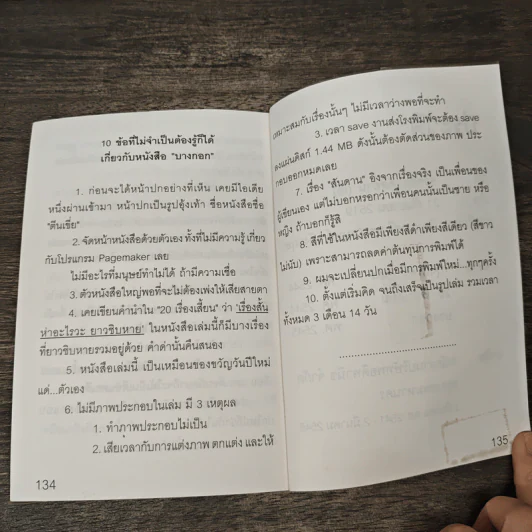 10 ข้อที่ไม่จำเป็นต้องรู้ก็ได้
เกี่ยวกับหนังสือ "บางกอก"
1. ก่อนจะได้หน้าปกอย่างที่เห็น เคยมีไอเดีย
หนึ่งผ่านเข้ามา หน้าปกเป็นรูปอุ้งเท้า ชื่อหนังสือชื่อ
"ตีนเขี่ย"
2. จัดหน้าหนังสือด้วยตัวเอง ทั้งที่ไม่มีความรู้ เกี่ยว
กับโปรแกรม Pagemaker เลย
ไม่มีอะไรที่มนุษย์ทำไม่ได้ ถ้ามีความเชื่อ
3. ตัวหนังสือใหญ่พอที่จะไม่ต้องเพ่งให้เสียสายตา
4. เคยเขียนคำนำใน "20 เรื่องเสี้ยน" ว่า 'เรื่องสั้น
ห่าอะไรวะ ยาวชิบหาย' ในหนังสือเล่มนี้ก็มีบางเรื่อง
ที่ยาวชิบหายรวมอยู่ด้วย คำด่านั้นคืนสนอง
5. หนังสือเล่มนี้ เป็นเหมือนของขวัญวันปีใหม่
แด่...ตัวเอง
6. ไม่มีภาพประกอบในเล่ม มี 3 เหตุผล
1. ทำภาพประกอบไม่เป็น
2. เสียเวลากับการแต่งภาพ ตกแต่ง และให้
134
เหมาะสมกับเรื่องนั้นๆ ไม่มีเวลาว่างพอที่จะทำ
3. เวลา save งานส่งโรงพิมพ์จะต้อง save
ลงแผ่นดิสก์ 1.44 MB ดังนั้นต้องตัดส่วนของภาพ ประ
กอบออกหมดเลย
7. เรื่อง "สันดาน" อิงจากเรื่องจริง เป็นเพื่อนของ
ผู้เขียนเอง แต่ไม่บอกหรอกว่าเพื่อนคนนั้นเป็นชาย หรือ
หญิง ถ้าบอกก็รู้สิ
8. สีที่ใช้ในหนังสือมีเพียงสีดำเพียงสีเดียว (สีขาว
ไม่นับ) เพราะสามารถลดค่าต้นทุนการพิมพ์ได้
9. ผมจะเปลี่ยนปกเมื่อมีการพิมพ์ใหม่...ทุกๆครั้ง
10. ตั้งแต่เริ่มคิด จนถึงเสร็จเป็นรูปเล่ม รวมเวลา
ทั้งหมด 3 เดือน 14 วัน
135